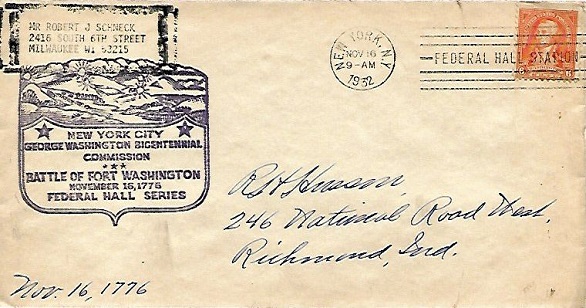 MR ROBERT J SCHNECK
2416 SOUTH 6TH STREET
MILWAUKEE WI 53215
NEW YORK, N.Y.
NOV 16
9-AM
1932
FEDERAL HALL STATION
NEW YORK CITY
GEORGE WASHINGTON BICENTENNIAL
COMMISSION
BATTLE OF FORT WASHINGTON
NOVEMBER 16, 1776
FEDERAL HALL SERIES
246 National Road West.
Richmond, Ind.
Nov. 16, 1776